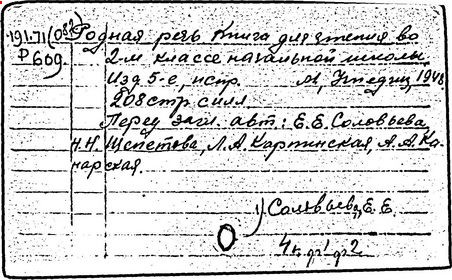 491.71(082) Родная речь Книга для чтения во
Р 609 2-м классе начальной школы.
Изд 5-е, испр. М, Учпедгиз, 1948
208 стр. с илл.
Перед загл. авт: Е.Е. Соловьева,
Н.Н. Щепетова, Л.А. Карпинская, А.А. Ка-
нарская.
1) Соловьева, Е.Е.